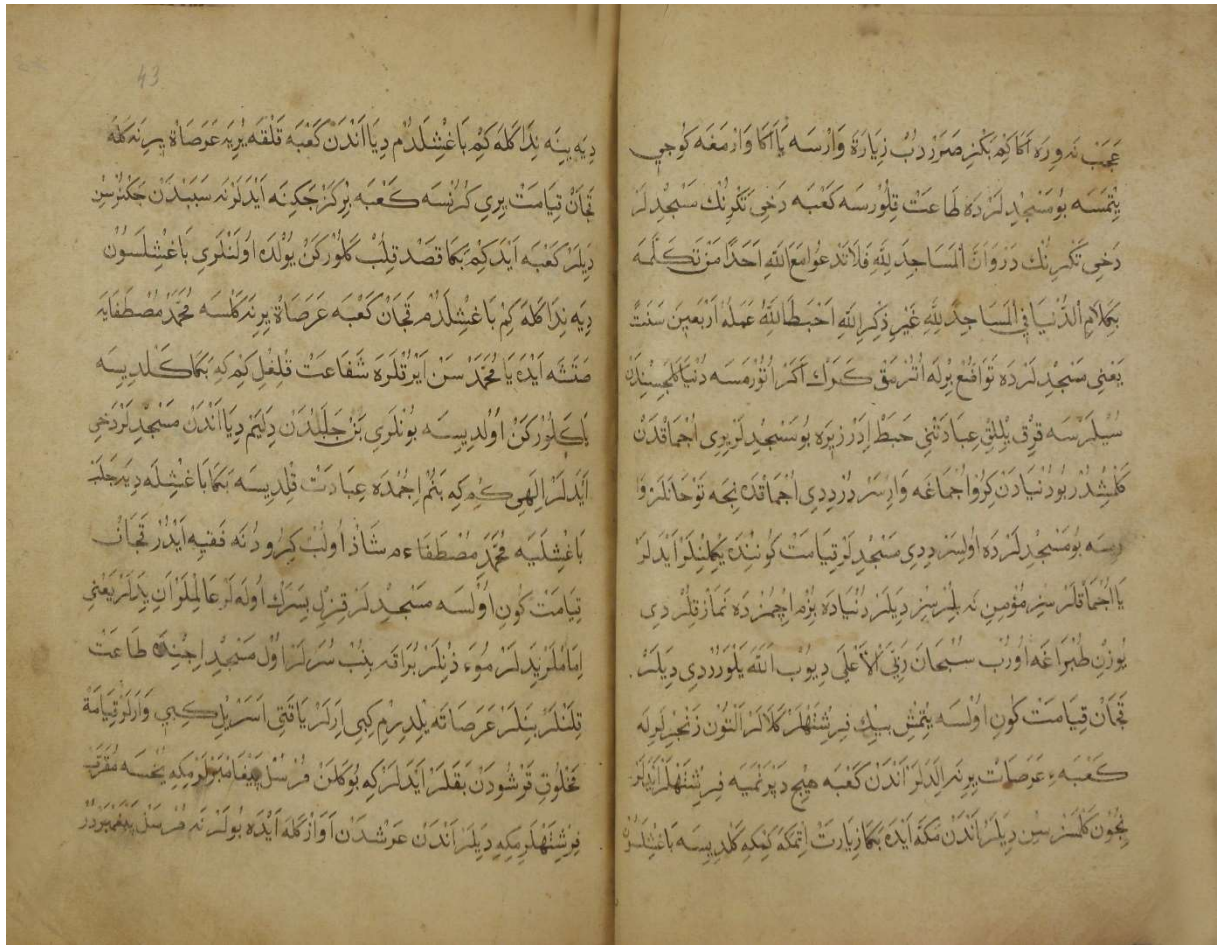 عَجَبْ نَه وِرَه اَكَا كِه بَكْزِ صَرَرْدُبْ زِيَارَة وَارْسَه يَا اَكَا وَارْمَغَه كُوجِي
يِتْمَسَه بُو مَسْجِدْلَرْدَه طَاعَتْ قِلُورْسَه كَعْبَه دَخِي تَكْرِنُكْ مَسْجِدْلَرْ
دَخِي تَكْرِنُكْ دَرْ وَاَنَّ الْمَسَاجِدَ لِلّٰهِ فَلَا تَدْعُوا مَعَ اللّٰهِ اَحَدًا مَنْ تَكَلَّمَه
بِكَلَامِ الدُّنْيَا فِي الْمَسَاجِدِ لِلّٰهِ غَيْرِ ذِكْرِ اللّٰهِ اَحْبَطَ اللّٰهُ عَمَلَهُ اَرْبَعِينَ سَنَتً
يَعْنِي مَسْجِدْلَرْدَه تَوَاضُعْ بِرْلَه اُتُرْمَقْ كَرَكْ اَكَرْ اُتُورْمَسَه دُنْيَا
سُيْلَرْسَه قِرْقْ يِلْلِقْ عِبَادَتِنِي حَبَطْ اِدَرْ زِيرَه بُو مَسْجِدْلَرْ يِرِي اُجْمَاقْدَنْ
كَلْمِشْدُرْ بُو دُنْيَادَنْ كِرُو اُجْمَاغَه وَارِسَرْدُرْ دِدِي اُجْمَاقْدَه نِجَه نَوْحَانْلَرْ وَا
رسَه بُو مَسْجِدْلَرْدَه اُولِسَرْ دِدِي مَسْجِدْلَرْ قِيَامَتْ كُونِنْدَه اَيْدَلَرْ
يَا اُجْمَاقْلَرْ سِزْ مُؤْمِنِ نَه بِلُرْسِزْ دِيَلَرْ دُنْيَادَه بِزُمْ اِچُمُزْدَه نَمَازْ قِلُرْدِي
يُوزِنْ طُبْرَاغَه اُورُبْ سُبْحَانَ رَبِّيَ الْاَعْلَى دِيُوبْ اَللّٰهَ يَلْوَرُرْدِي دِيَلَرْ
قَجَانْ قِيَامَتْ كُونِ اُولْسَه يُتْمِشْ بِيكْ فِرِشْتَهْلَرْ كَلَالَرْ اَلْتُونْ زَنْجِرْلَرْلَه
كَعْبَهءِ عَرَصَاتْ يِرِنَه اِلَدَلَرْ اَنْدَنْ كَعْبَه هِيچْ دَپْرَنْمَيَه فِرِشْتَهْلَرْ اَيْدَلَرْ
نِچُونْ كَلْمَزْسِنْ دِيَلَرْ اَنْدَنْ مَكَّه اَيْدَه بَكَا زِيَارَتْ اِتْمَكَه كِمْكِه كَلْدِيسَه بَاغِشْلَنْ
دِيَه يِنَه نِدَا كَلَه كِمْ بَاغِشْلَدُمْ دِيَا اَنْدَنْ كَعْبَه قَلْقَه يُرِيَه عَرَصَاة يِرِنَه كَلَه
قَجَانْ قِيَامَتْ يِرِي كُرُنْسَه كَعْبَه بِرْكَزْ جَكِنَه اَيْدَلَرْ نَه سَبَبْدَنْ جَكِنُرْسِنْ
دِيَلَرْ كَعْبَه اَيْدَه كِمْ بَكَا قَصْدْ قِلُبْ كَلُورْكَنْ يُولْدَه اُولَنْلَرِي بَاغِشْلَسُونْ
دِيَه نِدَا كَلَه كِمْ بَاغِشْلَدُمْ قَجَانْ كَعْبَه عَرَصَاة يِرِنَه كَلْسَه مُحَمَّدْ مُصْطَفَايَه
صَتَشَه اَيْدَه يَا مُحَمَّدْ سَنْ اَيْرُقْلَرَه شَفَاعَتْ قِلْغِلْ كِمْ كِه بَكَا كَلْدِيسَه
يَا كَلُورْكَنْ اُولْدِيسَه بُونْلَرِي بَنْ جَلَبُمْدَنْ دِلَيَمْ دِيَا اَنْدَنْ مَسْجِدْلَرْ دَخِي
اَيْدَلَرْ اِلٰهِي كِمْ كِه بَنُمْ اِچُمْدَه عِبَادَتْ قِلْدِيسَه بَكَا بَاغِشْلَه دِيَه جَلَبْ
بَاغِشْلَيَه مُحَمَّدْ مُصْطَفَا ءم شَاذْ اُولُبْ كِرُو دُنَه فَقِيه اَيْدُرْ قَجَانْ
قِيَامَتْ كُونِ اُولْسَه مَسْجِدْلَرْ قِزِلْ بَسَرَكْ اُولَه لَرْ عَالِمْلَرْ اَنِ يِدَلَرْ يَعْنِي
اِمَامْلَرْ يِدَلَرْ مُوءَذِّنْلَرْ بُرَاقَه بِنُبْ سُرَلَرْ اُولْ مَسْجِدْ اِچِنْدَه طَاعَتْ
قِلَنْلَرْ بِنَلَرْ عَرَصَاتَه يِلْدِرِمْ كِبِي اِرَلَرْ يَا قَتِي اَسَرْ يِلْ كِبِي وَارَلَرْ قِيَامَة
مَخْلُوقِ قَرْشُودَنْ بَقَلَرْ اَيْدَلَرْ كِه بُو كَلَنْ مُرْسَلْ پَيْغَامْبَرْلَرْمِكِه يُخْسَه مُقَرَّبْ
فِرِشْتَهْلَرْمِكِه دِيَلَرْ اَنْدَنْ عَرْشْدَنْ اَوَازْ كَلَه اَيْدَه بُولَرْ نَه مُرْسَلْ پَيْغَمْبَرْدُرْ